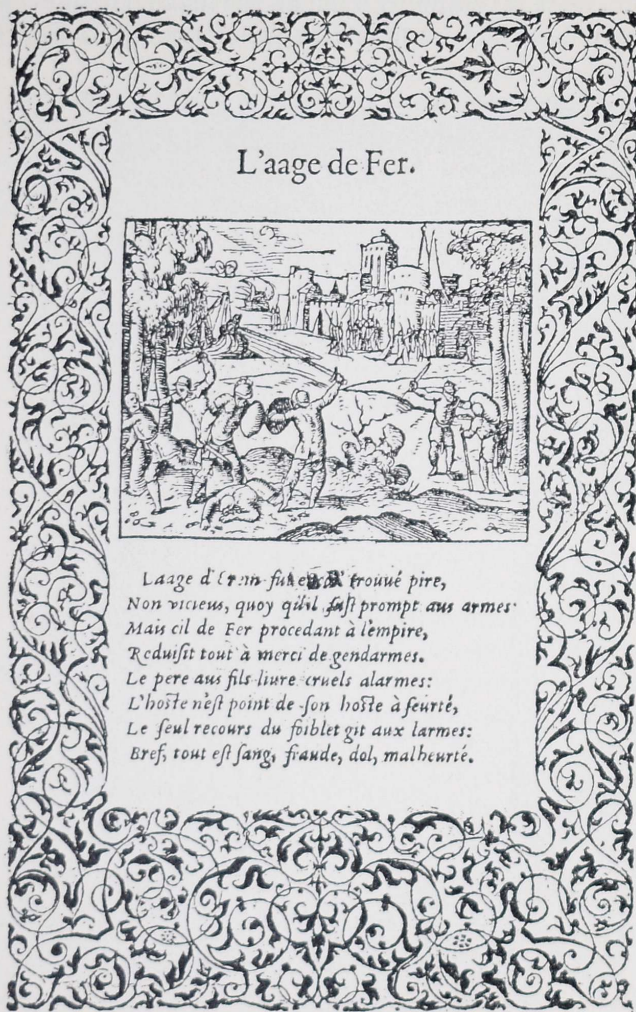 L'aage de Fer.
Laage d'Erain fut trouué pire,
Non vicieus, quoy qu'il fust prompt aus armes:
Mais cil de Fer procedant à l'empire,
Reduisit tout à merci de gendarmes.
Le pere aus fils liure cruels alarmes:
L'hoste n'est point de son hoste à seurté,
Le seul recours du foiblet git aux larmes:
Bref, tout est sang, fraude, dol, malheurté.